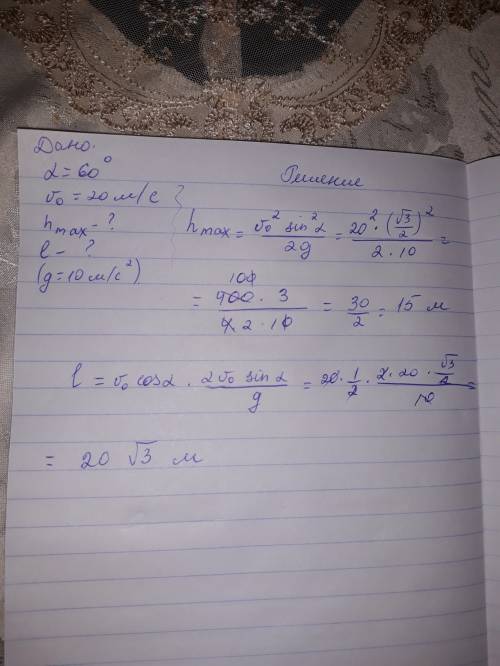 Дано:
α = 60°
v₀ = 20 м/с
hmax - ?
l - ?
(g = 10 м/с²)
Решение
hmax = v₀² sin²α / 2g = 20² · (√3/2)² / 2 · 10 =
= 400 · 3 / 4 · 2 · 10 = 30/2 = 15 м
100
l = v₀ cosα · 2v₀ sinα / g = 20 · 1/2 · 2 · 20 · √3/2 / 10 =
= 20 √3 м